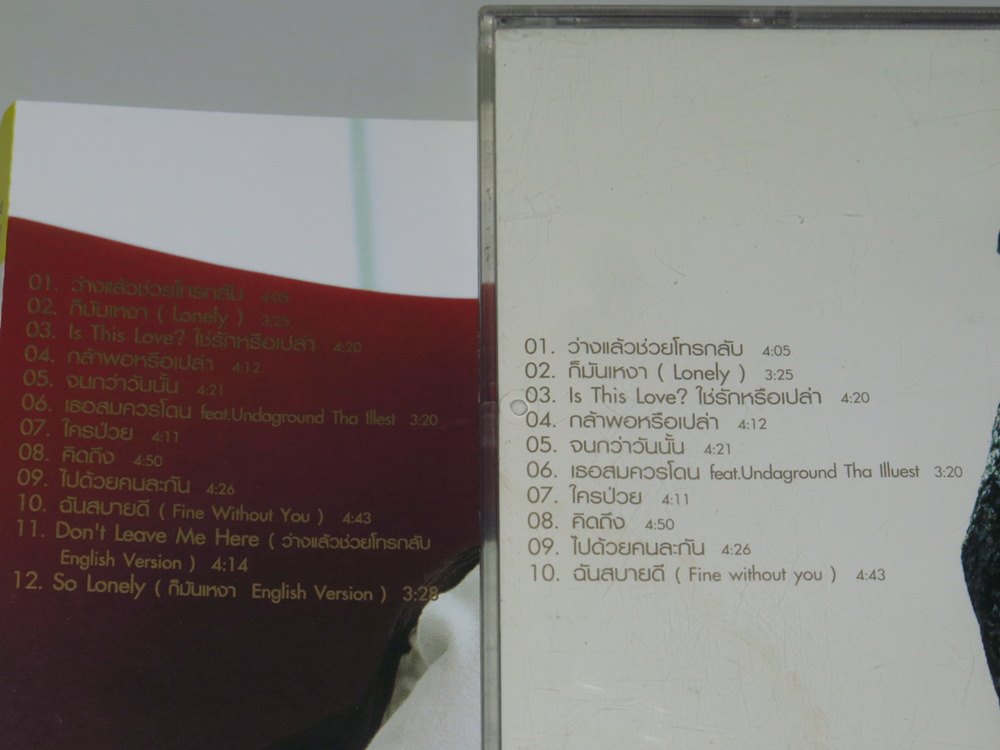 01. ว่างแล้วช่วยโทรกลับ 4:05
02. ก็มันเหงา ( Lonely ) 3:25
03. Is This Love? ใช่รักหรือเปล่า 4:20
04. กล้าพอหรือเปล่า 4:12
05. จนกว่าวันนั้น 4:21
06. เธอสมควรโดน feat.Undaground Tha Illest 3:20
07. ใครป่วย 4:11
08. คิดถึง 4:50
09. ไปด้วยคนละกัน 4:26
10. ฉันสบายดี ( Fine Without You ) 4:43
11. Don't Leave Me Here ( ว่างแล้วช่วยโทรกลับ
English Version ) 4:14
12. So Lonely ( ก็มันเหงา English Version ) 3:28
01. ว่างแล้วช่วยโทรกลับ 4:05
02. ก็มันเหงา ( Lonely ) 3:25
03. Is This Love? ใช่รักหรือเปล่า 4:20
04. กล้าพอหรือเปล่า 4:12
05. จนกว่าวันนั้น 4:21
06. เธอสมควรโดน feat.Undaground Tha Illuest 3:20
07. ใครป่วย 4:11
08. คิดถึง 4:50
09. ไปด้วยคนละกัน 4:26
10. ฉันสบายดี ( Fine without you ) 4:43